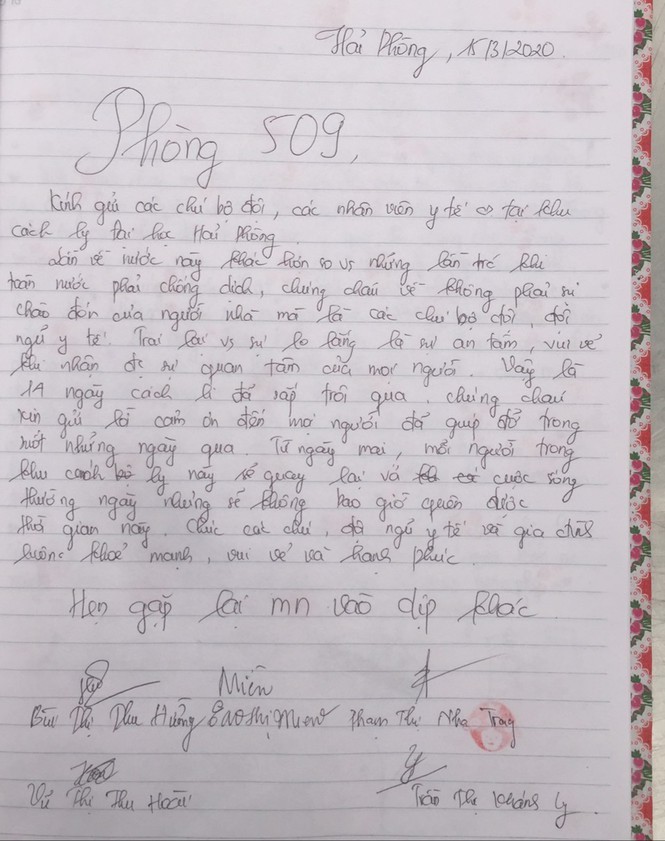 Hải Phòng, 15/3/2020.
Phòng 509,
Kính gửi các chú bộ đội, các nhân viên y tế tại khu
cách ly tại học Hải Phòng.
Lần về nước này khác hơn so vs những lần trc khi
toàn nước phải chống dịch, chúng cháu về không phải sự
chào đón của người nhà mà là các chú bộ đội, đội
ngũ y tế. Trái lại vs sự lo lắng là sự an tâm, vui vẻ
khi nhận đc sự quan tâm của mọi người. Vậy là
14 ngày cách li đã sắp trôi qua, chúng cháu
xin gửi lời cảm ơn đến mọi người đã giúp đỡ trong
suốt những ngày qua. Từ ngày mai, mỗi người trong
khu cách ly này sẽ quay lại với cuộc sống
thường ngày nhưng sẽ không bao giờ quên được
thời gian này. Chúc các chú, đội ngũ y tế và gia đình
luôn khoẻ mạnh, vui vẻ và hạnh phúc.
Hẹn gặp lại mn vào dịp khác
Miên
Bùi Thị Thu Hường Cao Thị Miên Phạm Thị Nha Trang
Vũ Thị Thu Hoài Trần Thị Khánh Ly.